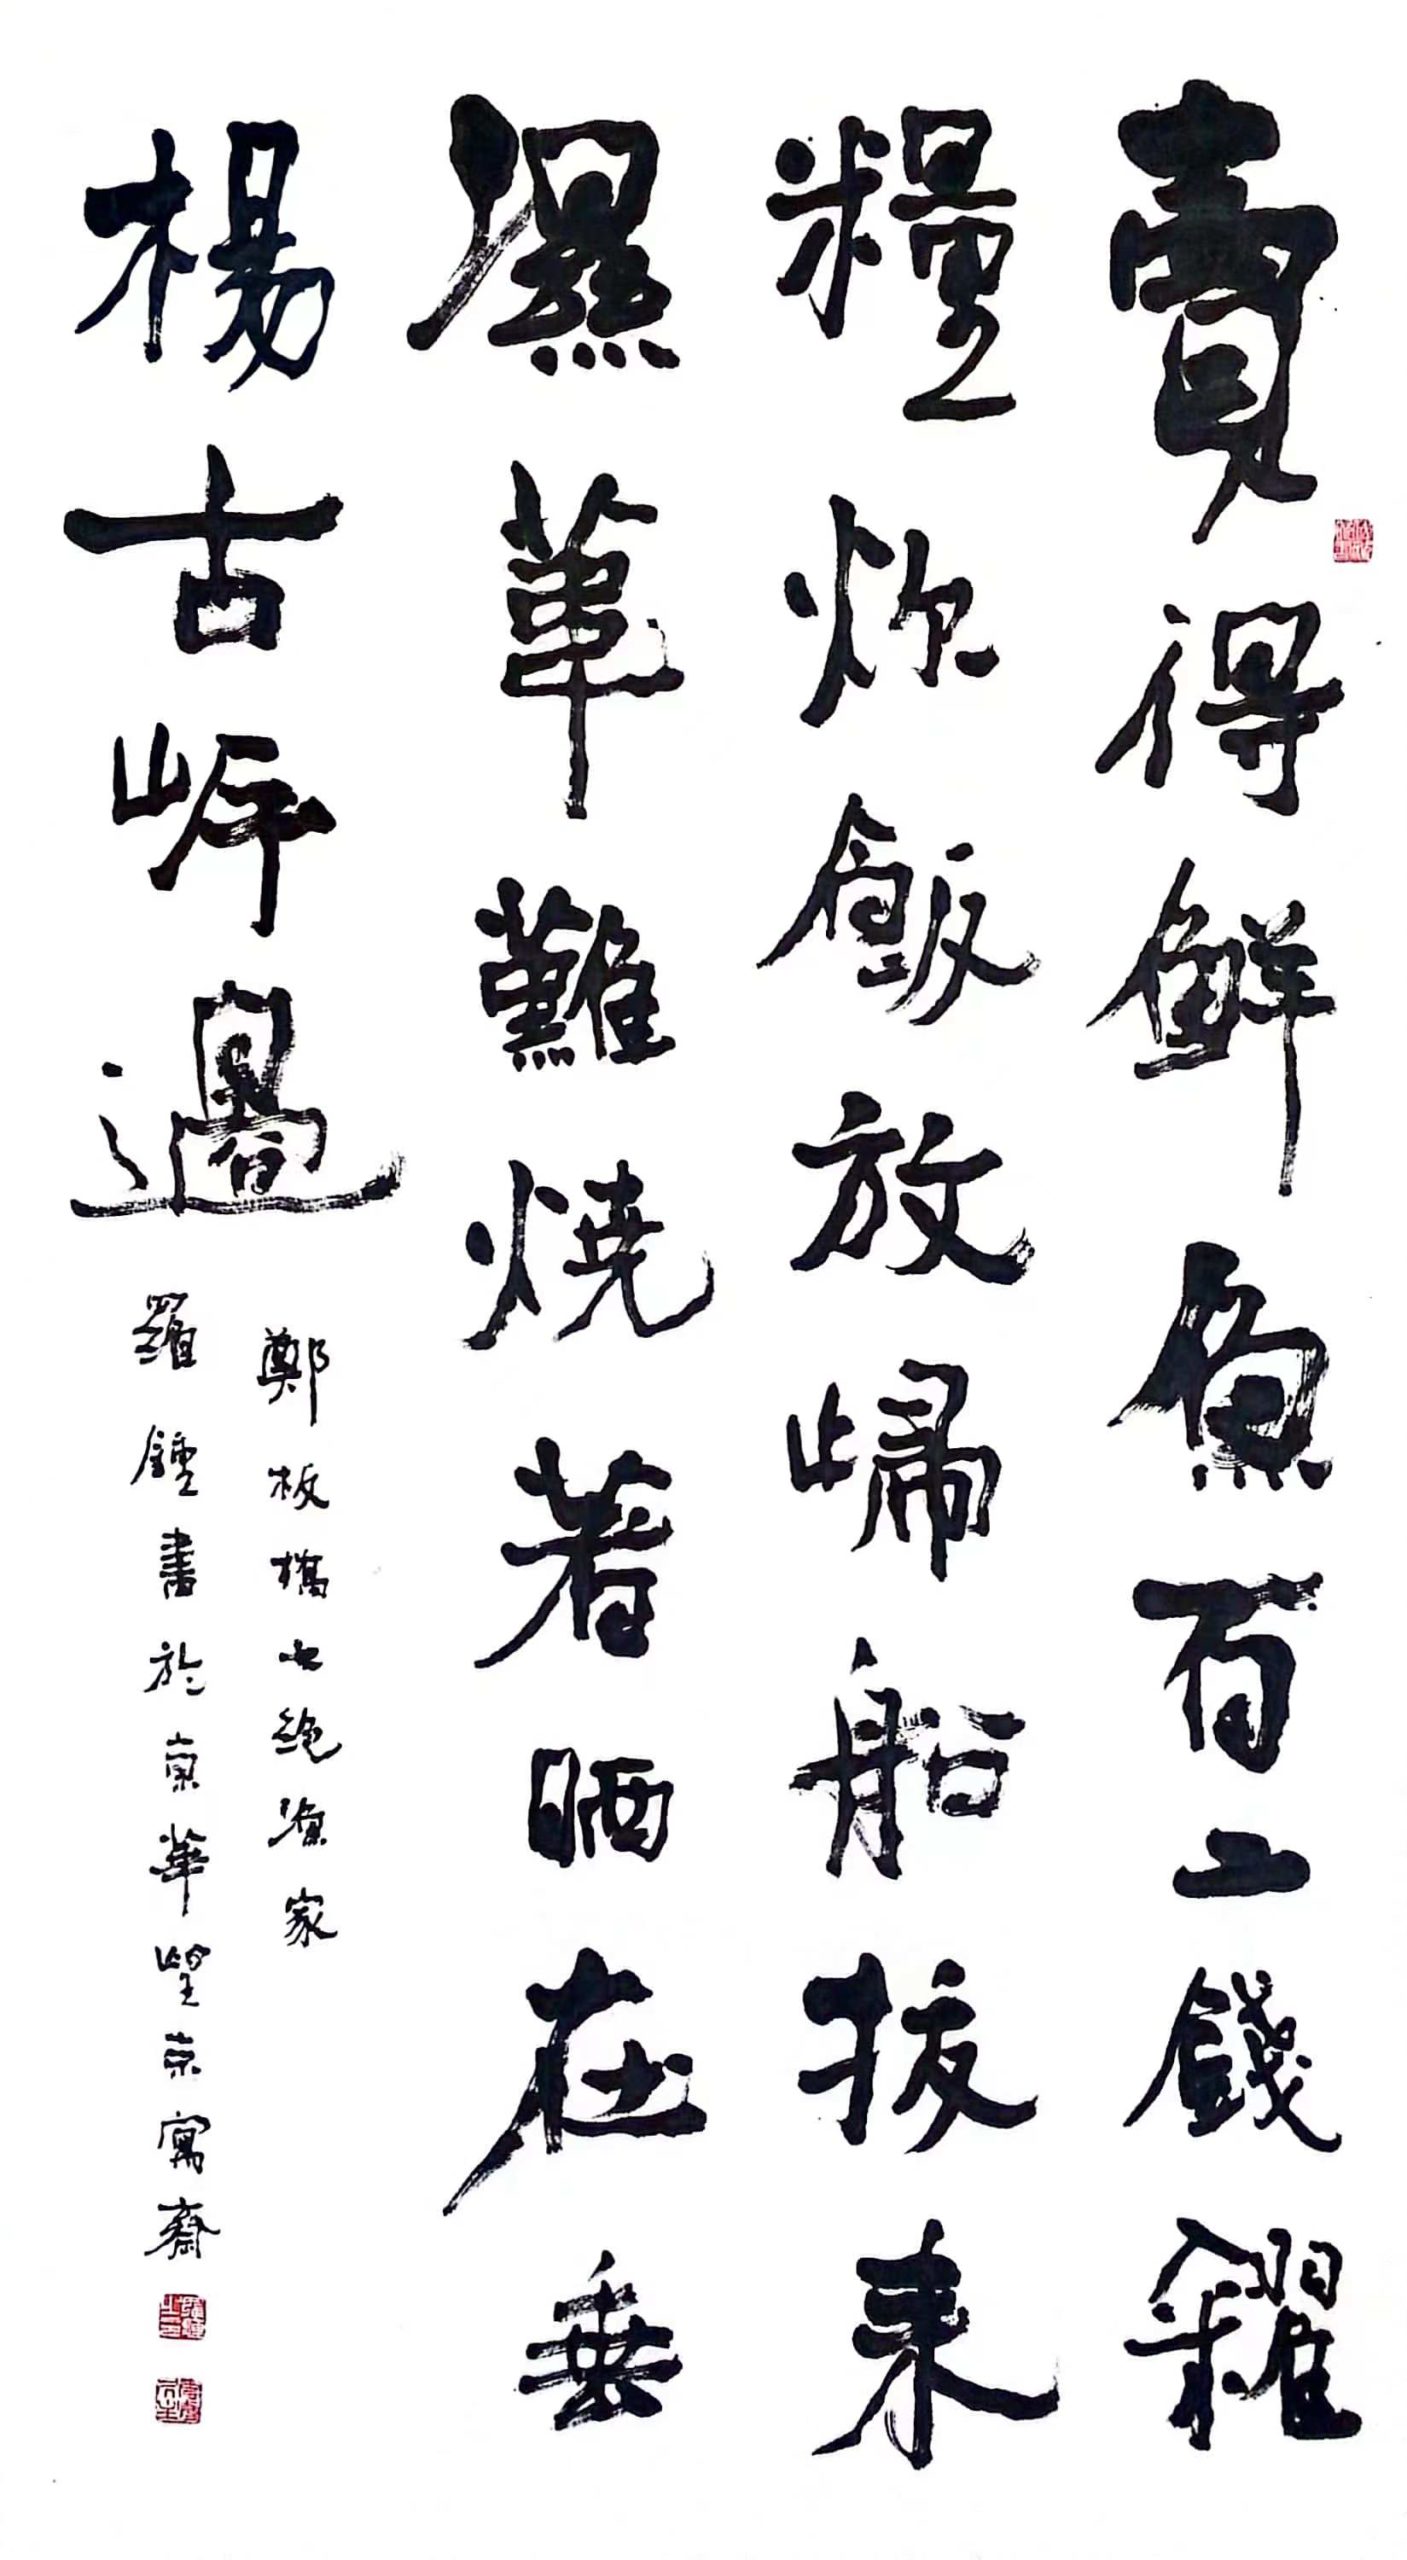 賣得鮮魚百二錢糴
糧炊飯放歸船拔來
濕葦難燒著晒在垂
楊古岸邊
鄭板橋七絕漁家
羅鍾書於京華望京寓齋